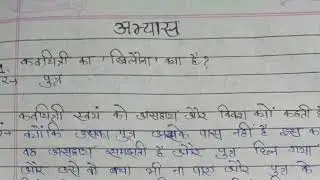 अभ्यास
1. कवयित्री का 'खिलौना' क्या है?
पुत्र
कवयित्री स्वयं को असहाय और विवश क्यों कहती है
क्योंकि उसका पुत्र उसके पास नहीं है इस का
वह असहाय समझती है और पुत्र छिन गया
और उसे वो बचा भी ना पाए और पुत्र के